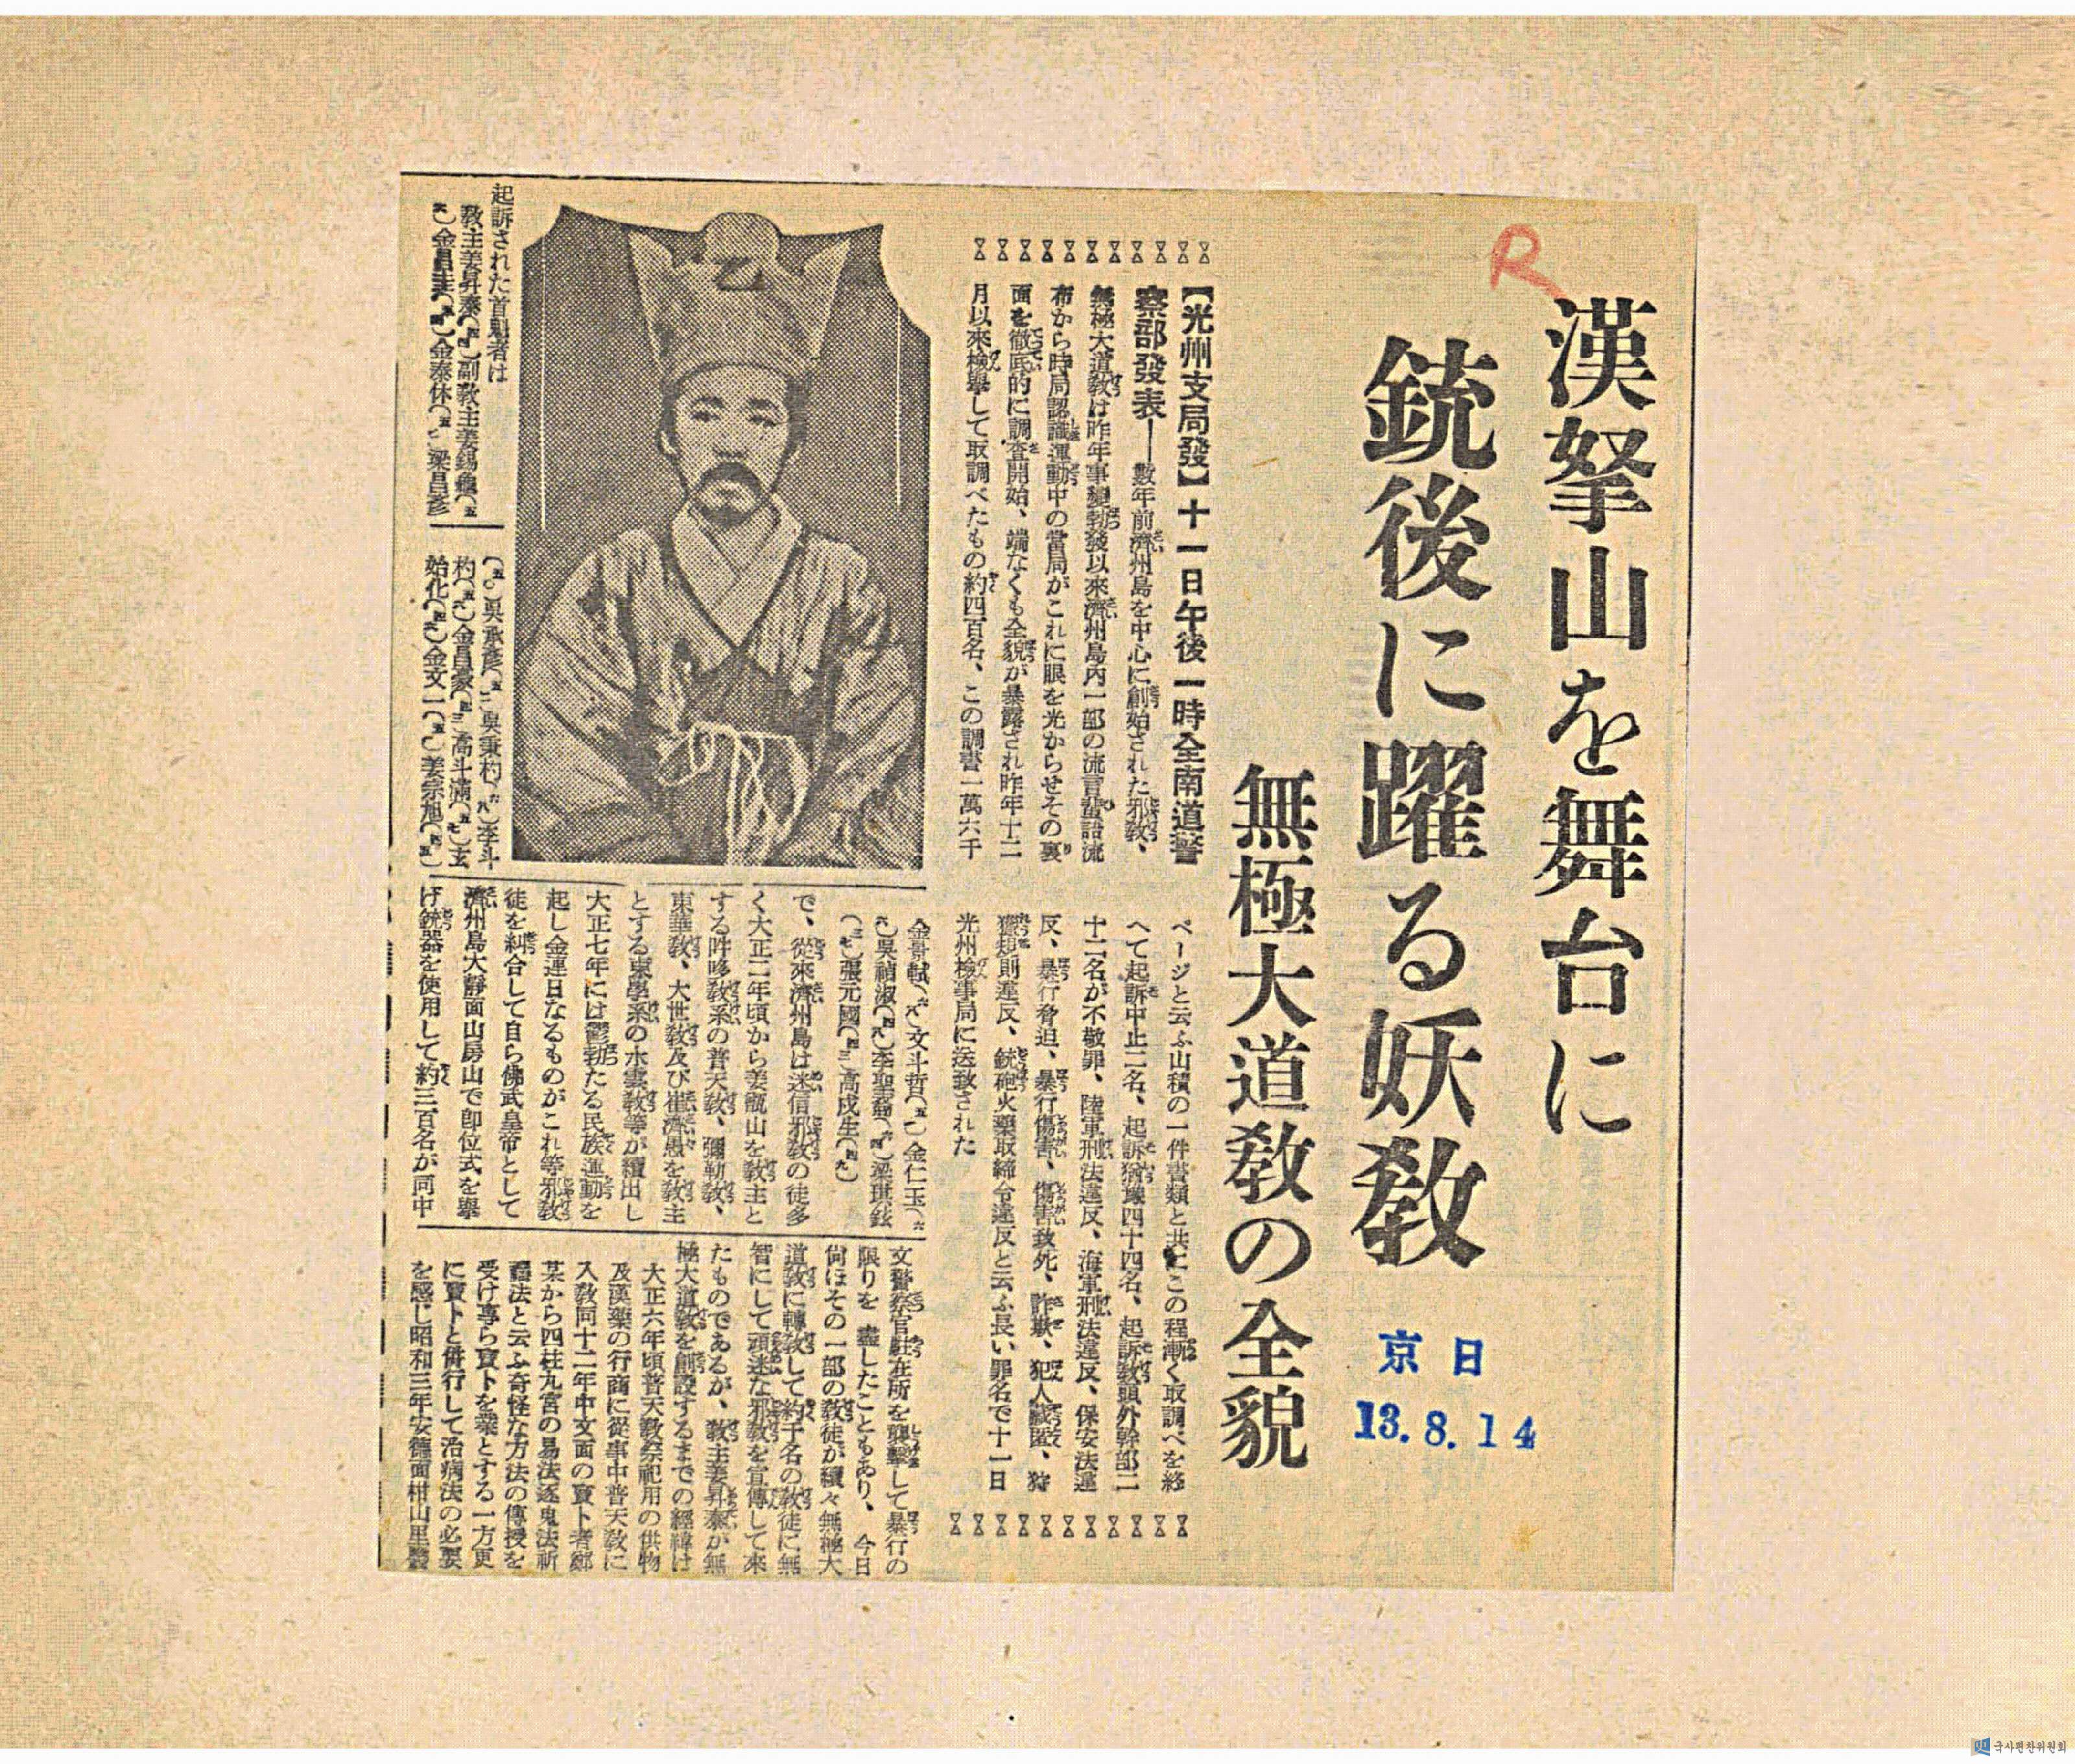 漢拏山を舞台に
銃後に躍る妖教
無極大道教の全貌
R
京日
13.8.14
【光州支局發】十一日午後一時全南道警
察部發表―數年前濟州島を中心に創始された邪教、
無極大道教は昨年事變勃發以來濟州島內一部の流言蜚語流
布から時局認識運動中の當局がこれに眼を光からせその裏
面を徹底的に調査開始、端なくも全貌が暴露され昨年十二
月以來檢擧して取調べたもの約四百名、この調書一萬六千
ページと云ふ山積の一件書類と共にこの程漸く取調べを終
へて起訴中止二名、起訴猶豫四十四名、起訴教頭外幹部二
十二名が不敬罪、陸軍刑法違反、海軍刑法違反、保安法違
反、暴行脅迫、暴行傷害、傷害致死、詐欺、犯人藏匿、狩
獵規則違反、銃砲火藥取締令違反と云ふ長い罪名で十一日
光州檢事局に送致された
乙
起訴された首魁者は
教主姜昇泰(四四)副教主姜錫龜(五
金昌圭 金泰休 梁昌彦
吳承彦 吳秉杓 李斗
杓 金昌豪 高斗滿 玄
始化 金文一 姜宗旭
文斗哲 金仁玉
吳禎淑 李聖裔 梁琪鉉
張元國 高戍生
で、從來濟州島は迷信邪教の徒多
く大正二年頃から姜甑山を教主と
する吽哆教系の普天教、彌勒教、
東華教、大世教及び崔濟愚を教主
とする東學系の水雲教等が續出し
大正七年には鬱勃たる民族運動を
起し金連日なるものがこれ等邪教
徒を糾合して自ら佛武皇帝として
濟州島大靜面山房山で卽位式を擧
げ銃器を使用して約三百名が同中
文警察官駐在所を襲擊して暴行の
限りを盡したこともあり、今日
尙ほその一部の教徒が續々無極大
道教に轉教して約千名の教徒に無
智にして頭迷な邪教を宣傳して來
たものであるが、教主姜昇泰が無
極大道教を創設するまでの經緯は
大正六年頃普天教祭祀用の供物
及漢藥の行商に從事中普天教に
入教同十二年中文面の賣卜者鄭
某から四柱九宮の易法逐鬼法祈
禱法と云ふ奇怪な方法の傳授を
受け專ら賣卜を業とする一方更
に賣卜と倂行して治病法の必要
を感じ昭和三年安德面柑山里
국사편찬위원회